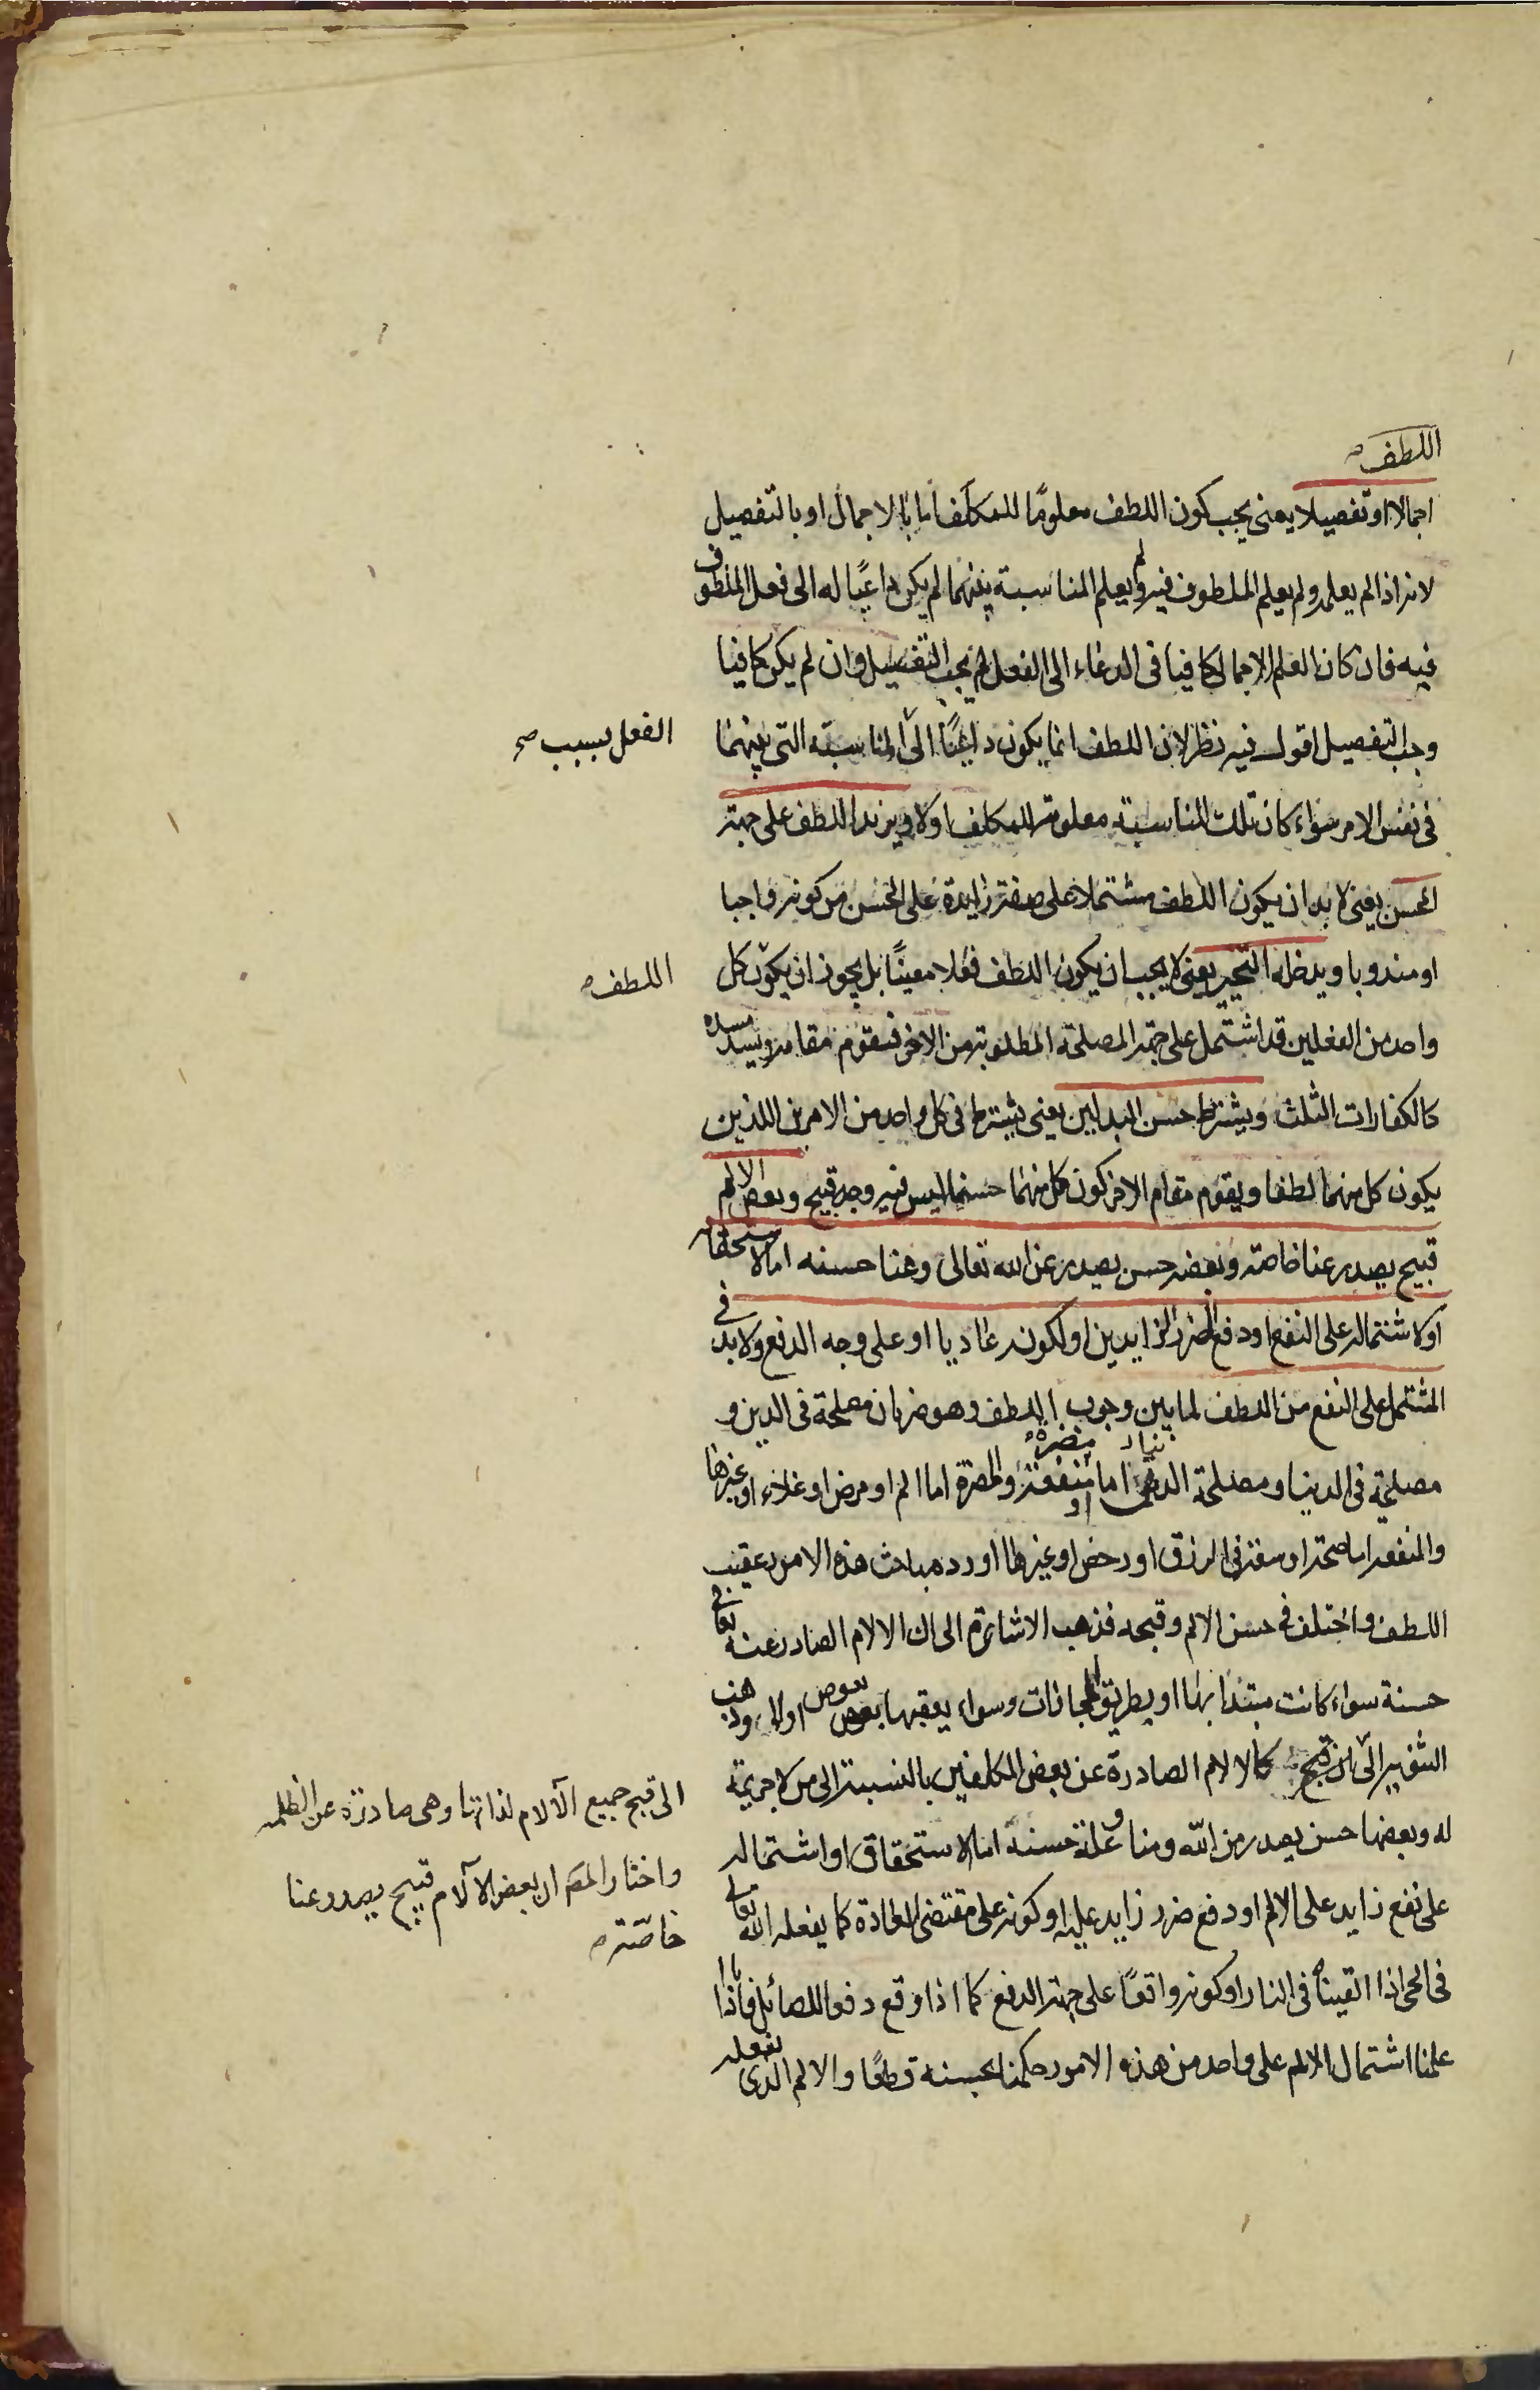 اللطف
اجمالا او تفصيلا يعنى يجب كون اللطف معلومًا للمكلف اما بالاجمال او بالتفصيل
لانه اذا لم يعلمه ولم يعلم الملطوف فيه ولم يعلم المناسبة بينهما لم يكن داعيًا له الى فعل الملطوف
فيه فان كان العلم الاجمالى كافيا فى الدعاء الى الفعل لم يجب التفصيل وان لم يكن كافيا
وجب التفصيل اقول فيه نظر لان اللطف انما يكون داعيًا الى المناسبة التى بينهما
الفعل بسبب صح
فى نفس الامر سواء كان تلك المناسبة معلومة للمكلف اولا ويزيد اللطف على جهة
الحسن يعنى لا بد ان يكون اللطف مشتملا على صفة زايدة على الحسن من كونه واجبا
او مندوبا ويدخله التخيير يعنى لا يجب ان يكون اللطف فعلا معينًا بل يجوز ان يكون كل
اللطف
واحد من الفعلين قد اشتمل على جهة المصلحة المطلوبة من الاخر فيقوم مقامه ويسد مسده
كالكفارات الثلث ويشترط حسن البدلين يعنى يشترط فى كل واحد من الامرين اللذين
يكون كل منهما لطفا ويقوم مقام الاخر كون كل منهما حسنا ليس فيه وجه قبيح وبعض الالم
قبيح يصدر عنا خاصة وبعضه حسن يصدر عن الله تعالى وعنا حسنه اما لاستحقاقه
او لاشتماله على النفع او دفع الضرر الزايدين او لكونه عاديا او على وجه الدفع ولا بد فى
المشتمل على النفع من اللطف لما بين وجوب اللطف وهو ضربان مصلحة فى الدين و
مصلحة فى الدنيا ومصلحة الدنيا اما مضرة او منفعة والمضرة اما الم او مرض او غلاء او غيرها
والمنفعة اما صحة او سعة فى الرزق او رخص او غيرها اورد مباحث هذه الامور عقيب
اللطف واختلف فى حسن الالم وقبحه فذهب الاشاعرة الى ان الالام الصادرة عنه تعالى
حسنة سواء كانت مبتدأ بها او بطريق المجازات وسواء يعقبها بعوض اولا وذهب
الثنوية الى ان قبح كالالام الصادرة عن بعض المكلفين بالنسبة الى من لا جريمة
الى قبح جميع الآلام لذاتها وهى صادرة عن الظلمة
واختار المص ان بعض الآلام قبيح يصدر عنا
خاصة
له وبعضها حسن يصدر من الله ومنا وعلة حسنه اما الاستحقاق او اشتماله
على نفع زايد على الالم او دفع ضرر زايد عليه او كونه على مقتضى العادة كما يفعله الله تعالى
فى الحى اذا القيناه فى النار او كونه واقعًا على جهة الدفع كما اذا وقع دفعا للصائل فانا اذا
علمنا اشتمال الالم على واحد من هذه الامور حكمنا بحسنه قطعًا والالم الذى يفعله